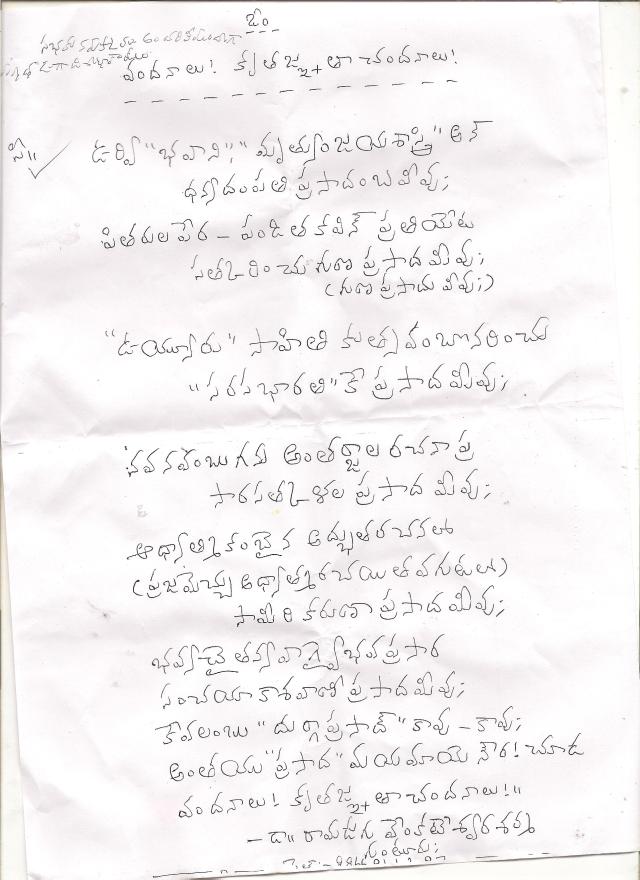 ఓం
వందనాలు! కృతజ్ఞతా చందనాలు!
సీ॥ ఉర్వి "భవాని", "మృత్యుంజయశాస్త్రి" ఆన్
ధన్యదంపతి ప్రసాదంబవీవు;
పితరుల పేర - పండిత కవిన్ ప్రతియేట
సత్కరించు గుణ ప్రసాద మీవు;
(గుణ ప్రసాదు వీవు;)
"ఉయ్యూరు" సాహితీ కుత్సవంబొనరించు
"సరసభారతి"కే ప్రసాద మీవు;
నవనవంబుగను అంతర్జాల రచనా ప్ర
సారసత్కళల ప్రసాద మీవు;
ఆధ్యాత్మికంబైన అద్భుతరచనలో
(ప్రజమెచ్చు ఆధ్యాత్మ రచయిత వగుటలో)
సామిరి కరుణా ప్రసాద మీవు;
భవ్యచైతన్యవాగ్వైభవప్రసార
సంచయాకాశవాణీ ప్రసాదమీవు;
కేవలంబు "దుర్గాప్రసాద్" కావు - కావు;
అంతయు "ప్రసాద" మయమాయె నౌర! చూడ
వందనాలు! కృతజ్ఞతా చందనాలు!"
- డా॥ రామడుగు వేంకటేశ్వరశర్మ
గుంటూరు;